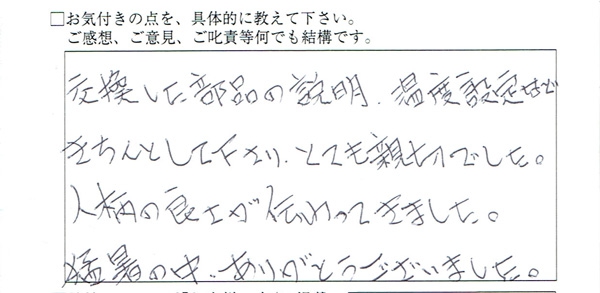 □お気付きの点を、具体的に教えて下さい。
ご感想、ご意見、ご叱責等何でも結構です。
交換した部品の説明、温度設定など
きちんとして下さり、とても親切でした。
人柄の良さが伝わってきました。
猛暑の中、ありがとうございました。